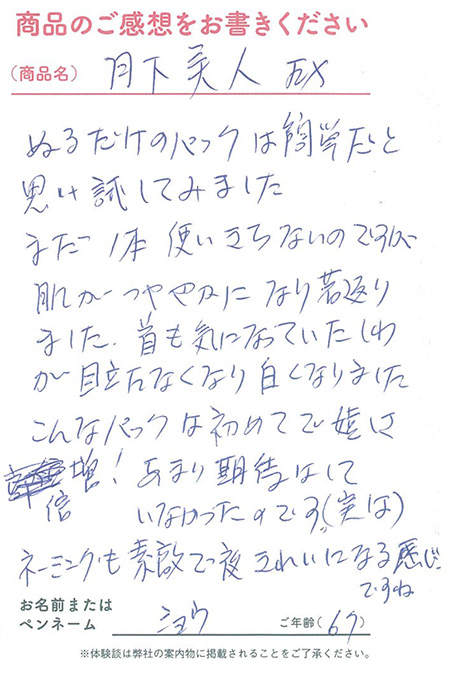 商品のご感想をお書きください
(商品名) 月下美人 EX
ぬるだけのパックは簡単だと
思い試してみました
まだ1本使いきらないのですが
肌がつややかになり若返り
ました。首も気になっていたしわ
が目立たなくなり白くなりました
こんなパックは初めてで嬉さ
倍増! あまり期待はして
いなかったのです(実は)
ネーミングも素敵で夜きれいになる感じ
ですね
お名前または
ペンネーム ショウ ご年齢(67)
※体験談は弊社の案内物に掲載されることをご了承ください。